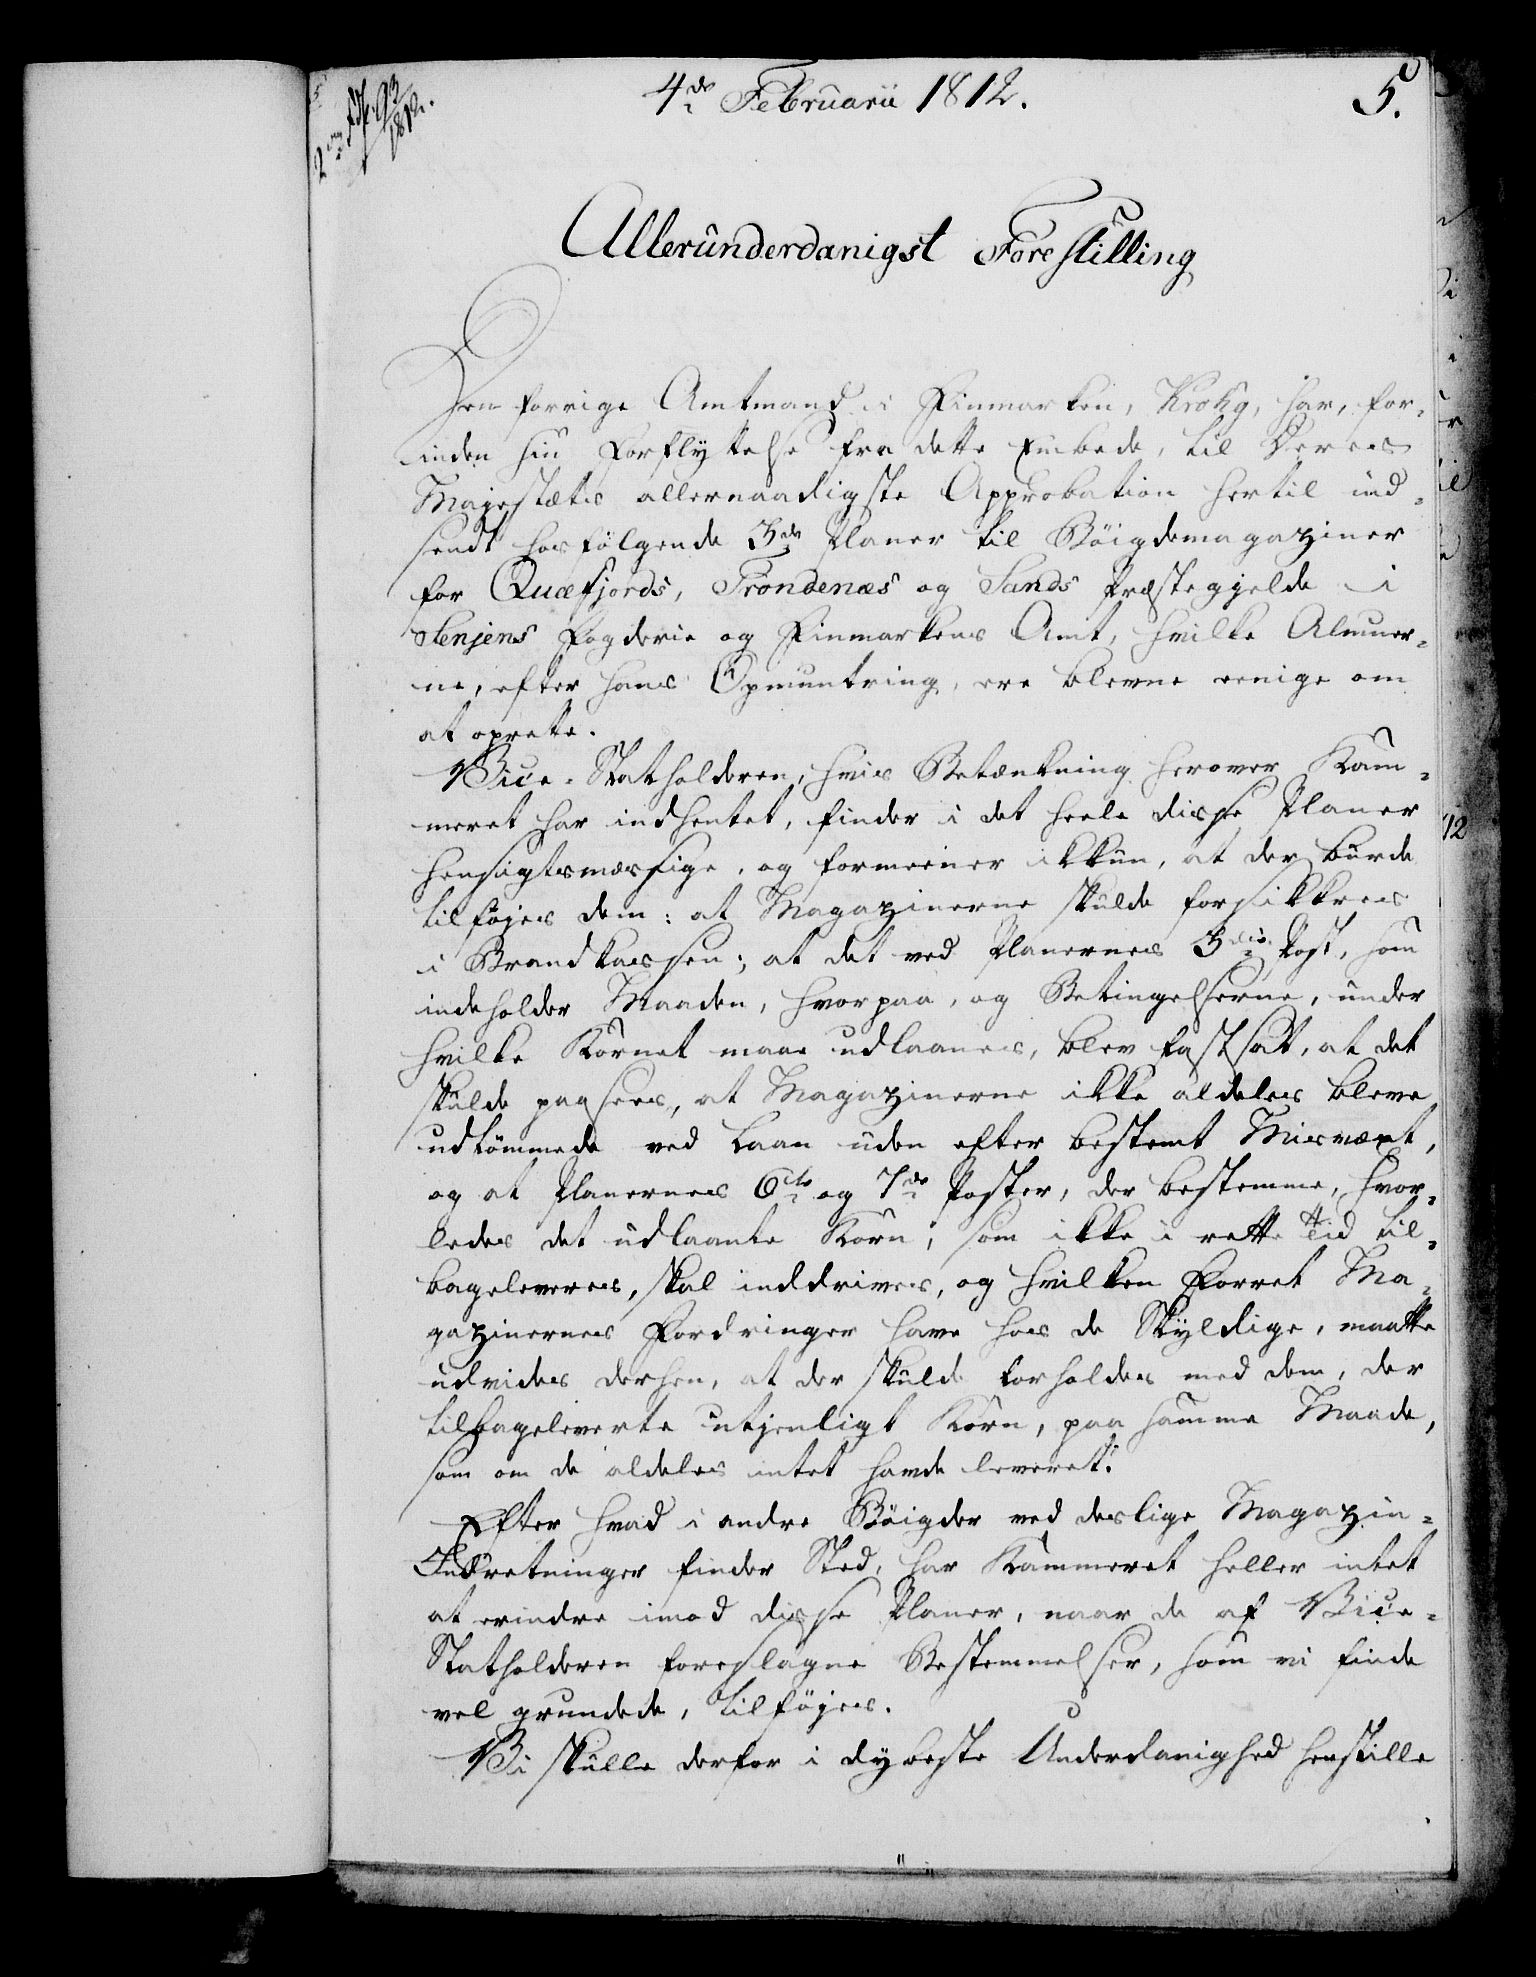 4de Februarii 1812.
5.
Allerunderdanigst Forestilling
Den forrige Amtmand i Finmarken, Krohg, har, for-
inden sin Forflyttelse fra dette Embede, til Deres
Majestæts allernaadigste Approbation hertil ind-
sendt hosfølgende 3de Planer til Bøigdemagaziner
for Quæfjords, Trondenæs og Sands Præstegjelde i
Senjens Fogderie og Finmarkens Amt, hvilke Almuer-
ne, efter hans Opmuntring, ere blevne eenige om
at oprette.
Vice-Statholderen, hvis Betænkning herover Kam-
meret har indhentet, finder i det heele disse Planer
hensigtsmæssige, og formeener ikkun, at der burde
tilføjes dem: at Magazinerne skulde forsikkres
i Brandkassen; at det ved Planernes 3die Post, som
indeholder Maaden, hvorpaa, og Betingelserne, under
hvilke Kornet maae udlaanes, blev fastsat, at det
skulde paasees, at Magazinerne ikke aldeles bleve
udtømmede ved Laan uden efter bestemt Misvæxt,
og at Planernes 6te og 7de Poster, der bestemme, hvor-
ledes det udlaante Korn, som ikke i rette Tid til-
bageleveres, skal inddrives, og hvilken Forret Ma-
gazinernes Fordringer have hos de Skyldige, maatte
udvides derhen, at der skulde forholdes med dem, der
tilbageleverte utjenligt Korn, paa samme Maade,
som om de aldeles intet havde leveret.
Efter hvad i andre Bøigder ved deslige Magazin-
Indretninger finder Sted, har Kammeret heller intet
at erindre imod disse Planer, naar de af Vice-
Statholderen foreslagne Bestemmelser, som vi finde
vel grundede, tilføjes.
Vi skulle derfor i dybeste Underdanighed henstille